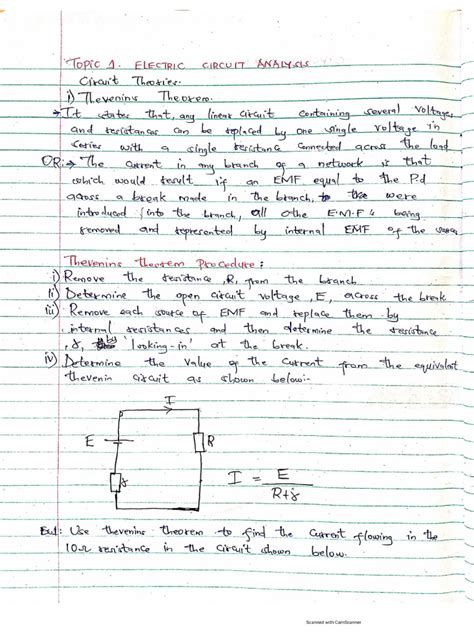 TOPIC 1. ELECTRIC CIRCUIT ANALYSIS
Circuit Theories.
i) Thevenins Theorem.
→ It states that, any linear circuit containing several voltages
and resistances can be replaced by one single voltage in
series with a single resistance connected across the load
OR:→ The current in any branch of a network is that
which would result if an EMF equal to the P.d
across a break made in the branch, were
introduced into the branch, all othe E.M.F's being
removed and represented by internal EMF of the
Thevenins theorem Procedure:
i) Remove the resistance, R, from the branch
ii) Determine the open circuit voltage, E, across the break
iii) Remove each source of EMF and replace them by
internal resistances and then determine the resistance
, r, by 'looking-in' at the break.
iv) Determine the value of the current from the equivalent
thevenin circuit as shown below:-
I
E
R
r
I = E
R+r
Use thevenins theorem to find the current flowing in the
10Ω resistance in the circuit shown below.
Scanned with CamScanner